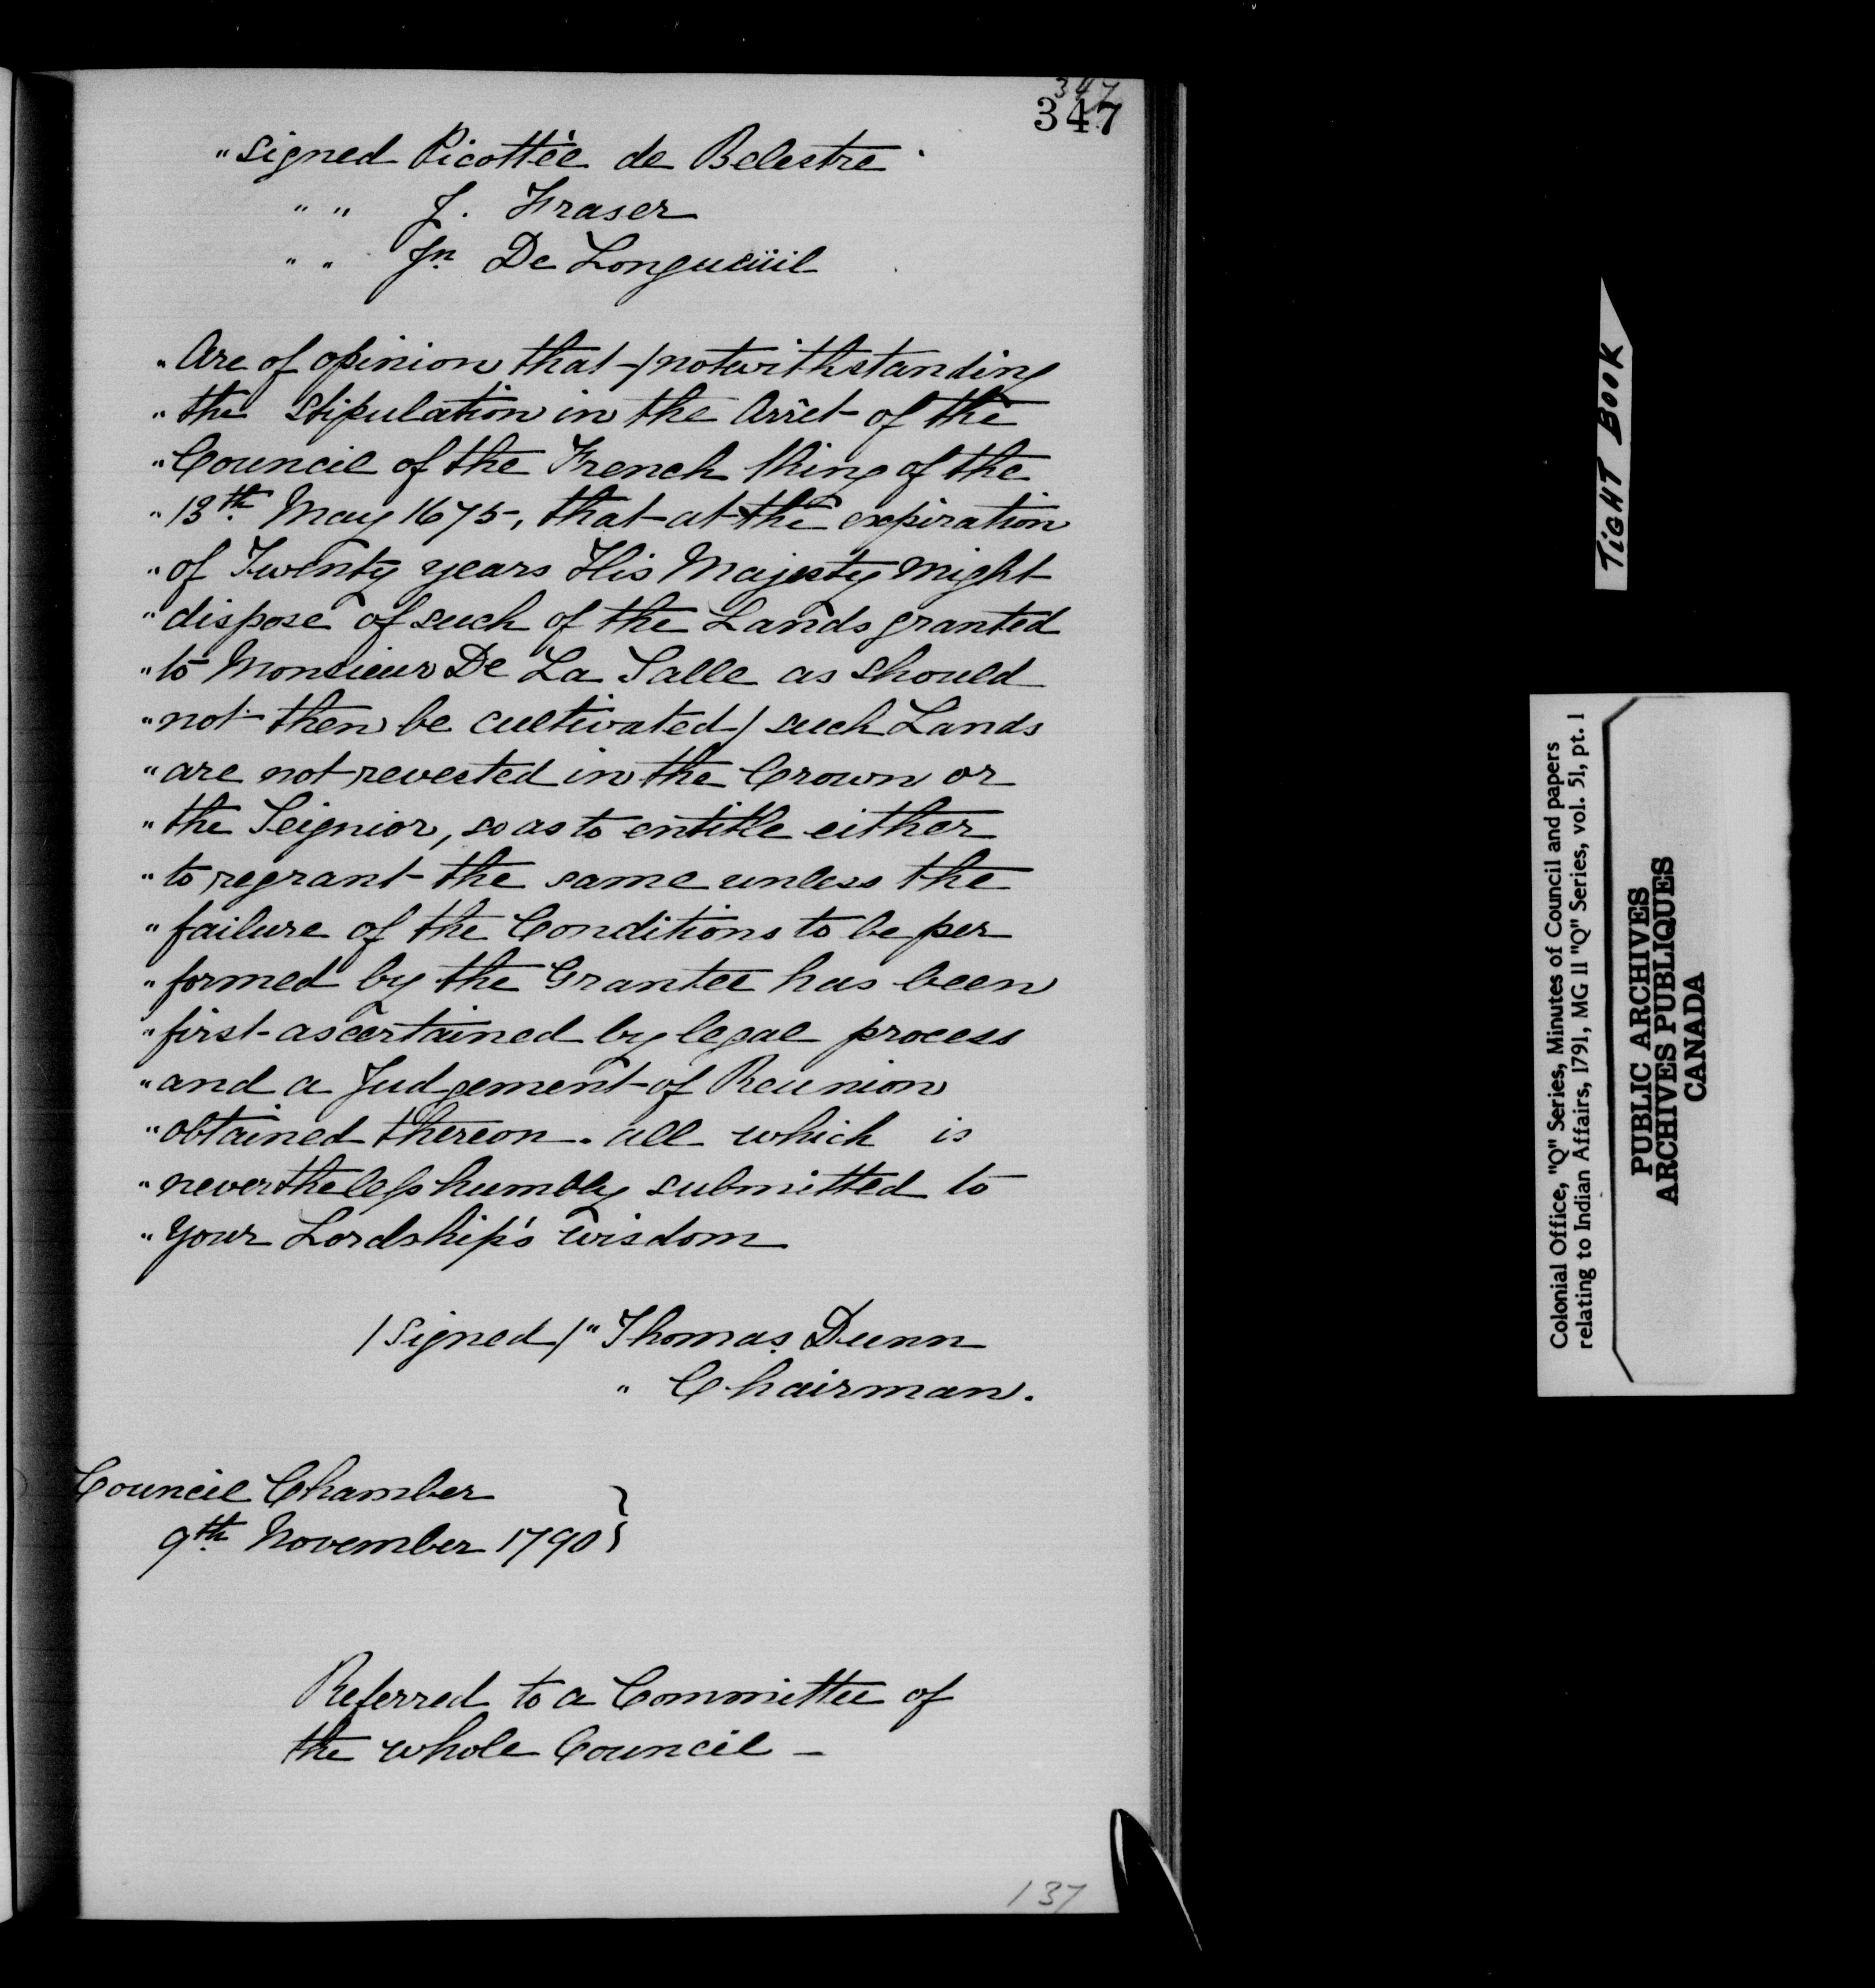 347
347
"signed Picottée de Belestre
" " J. Fraser
" " Jn De Longueüil
"Are of opinion that /notwithstanding
"the stipulation in the Arrêt of the
"Council of the French King of the
"13th May 1675, that at the expiration
"of Twenty years His Majesty might
"dispose of such of the Lands granted
"to Monsieur De La Salle as should
"not then be cultivated/ such Lands
"are not revested in the Crown or
"the Seignior, so as to entitle either
"to regrant the same unless the
"failure of the Conditions to be per
"formed by the Grantee has been
"first ascertained by legal process
"and a Judgement of Reunion
"obtained thereon. all which is
"nevertheless humbly submitted to
"your Lordship's wisdom
/signed/ "Thomas Dunn
" Chairman.
Council Chamber
9th November 1790 }
Referred to a Committee of
the whole Council –
137
TIGHT BOOK
Colonial Office, "Q" Series, Minutes of Council and papers
relating to Indian Affairs, 1791, MG 11 "Q" Series, vol. 51, pt. 1
PUBLIC ARCHIVES
ARCHIVES PUBLIQUES
CANADA